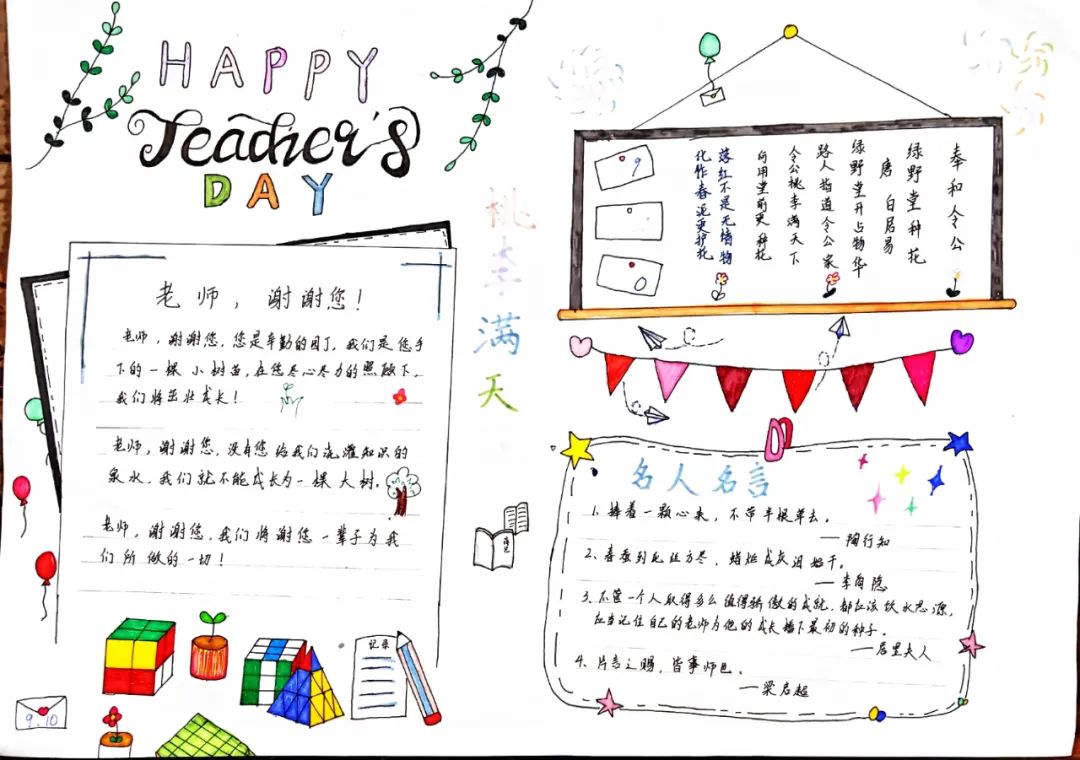 HAPPY
Teacher's
DAY
老师，谢谢您！
老师，谢谢您，您是辛勤的园丁，我们是您手
下的一棵小树苗，在您尽心尽力的照顾下，
我们将茁壮成长！
老师，谢谢您，没有您给我们浇灌知识的
泉水，我们就不能成长为一棵大树。
老师，谢谢您，我们将谢谢您一辈子为我
们所做的一切！
记录
9.10
桃
李
满
天
奉和令公
绿野堂种花
唐 白居易
绿野堂开占物华
路人指道令公家
令公桃李满天下
何用堂前更种花
落红不是无情物
化作春泥更护花
9
名人名言
1、捧着一颗心来，不带半根草去。
——陶行知
2、春蚕到死丝方尽，蜡炬成灰泪始干。
——李商隐
3、不管一个人取得多么值得骄傲的成就，都应该饮水思源，
应当记住自己的老师为他的成长播下最初的种子。
——居里夫人
4、片言之赐，皆事师也。
——梁启超